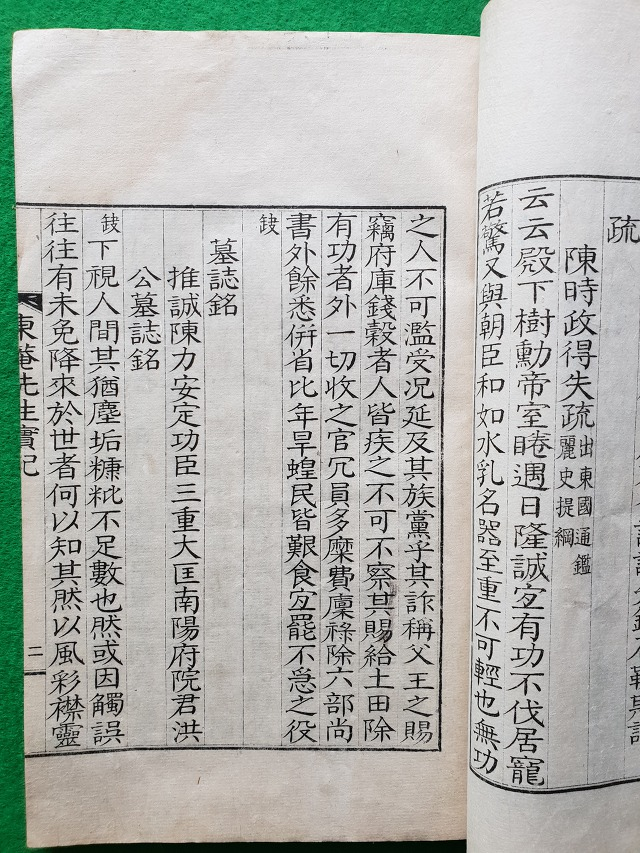 疏
陳時政得失疏出東國通鑑
麗史提綱
云云殿下樹勳帝室睠遇日隆誠宜有功不伐居寵
若驚又與朝臣和如水乳名器至重不可輕也無功
之人不可濫受况延及其族黨乎其詐稱父王之賜
竊府庫錢穀者人皆疾之不可不察其賜給土田除
有功者外一切收之官冗員多糜費廩祿除六部尚
書外餘悉併省比年旱蝗民皆艱食宜罷不急之役
鈌
墓誌銘
推誠陳力安定功臣三重大匡南陽府院君洪
公墓誌銘
鈌下視人間其猶塵垢糠粃不足數也然或因觸誤
往往有未免降來於世者何以知其然以風彩襟靈
東菴先生實記
二